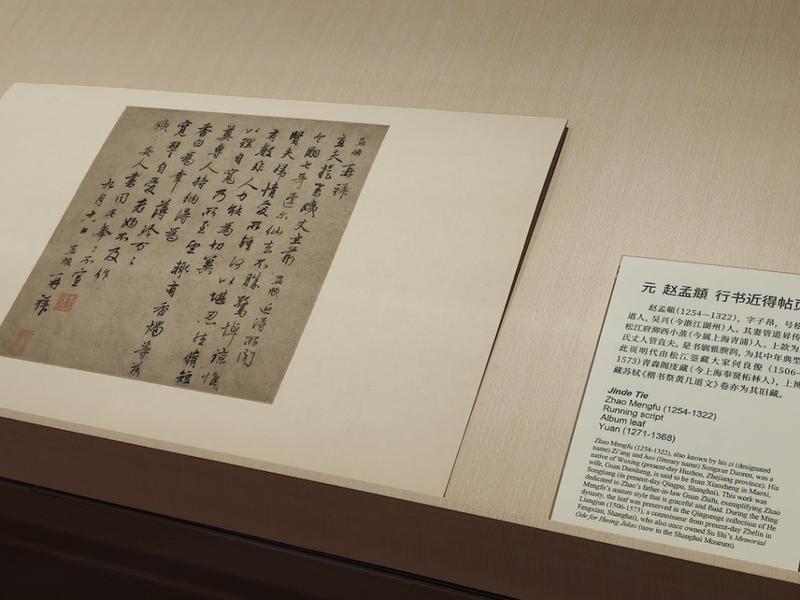 孟頫再拜
立夫提舉姨丈坐前孟頫近得所聞
令嗣七哥遽尔仙去不勝驚悼諒惟
賢夫婦情愛所鍾何以堪忍然脩短
有數非人力能為切冀
以理自寬乃所至望輒有香燭等
專人持納得為
自愛
不宣
九月六日孟頫再拜
元 赵孟頫 行书近得帖页
赵孟頫(1254—1322)，字子昂，号松
道人，吴兴(今浙江湖州)人。其妻管道昇传
松江府泖西小蒸(今属上海青浦)人。上款为
氏丈人管直夫。是书娴雅腴润，为其中年典型
此页明代由松江鉴藏大家何良俊（1506—
1573)青森阁庋藏(今上海奉贤柘林人)，上博
藏苏轼《楷书祭黄几道文》卷亦为其旧藏。
Jinde Tie
Zhao Mengfu (1254-1322)
Running script
Album leaf
Yuan (1271-1368)
Zhao Mengfu (1254-1322), also known by his zi (designated
name) Zi'ang and hao (literary name) Songxue Daoren, was a
native of Wuxing (present-day Huzhou, Zhejiang province). His
wife, Guan Daosheng, is said to be from Xiaozheng in Maoxi,
Songjiang (in present-day Qingpu, Shanghai). This work was
dedicated to Zhao's father-in-law Guan Zhifu, exemplifying Zhao
Mengfu's mature style that is graceful and fluid. During the Ming
dynasty, the leaf was preserved in the Qingsenge collection of He
Liangjun (1506-1573), a connoisseur from present-day Zhelin in
Fengxian, Shanghai), who also once owned Su Shi's Memorial
Ode for Huang Jidao (now in the Shanghai Museum).